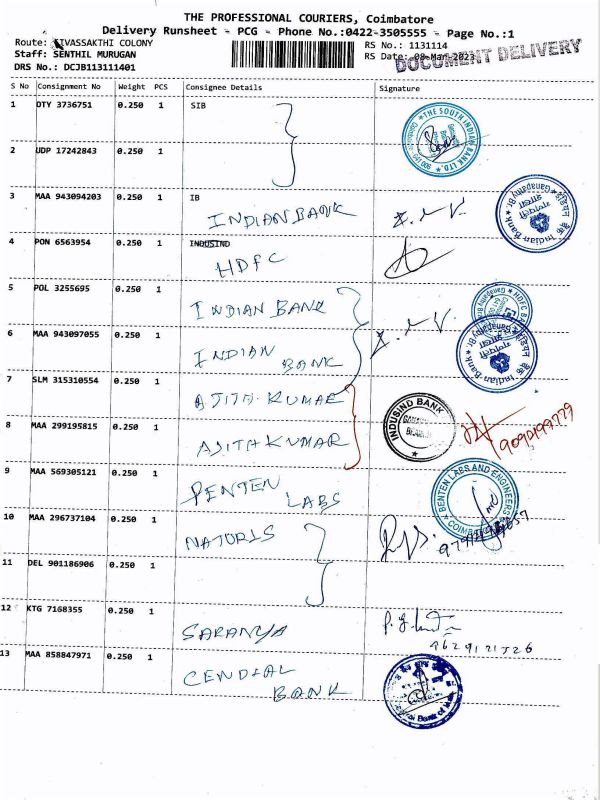 THE PROFESSIONAL COURIERS, Coimbatore
Delivery Runsheet - PCG - Phone No.:0422-3505555 - Page No.:1
Route: SIVASSAKTHI COLONY
RS No.: 1131114
Staff: SENTHIL MURUGAN
RS Date: 08-Mar-2023
DOCUMENT DELIVERY
DRS No.: DCJB113111401
S No Consignment No Weight PCS Consignee Details Signature
1 OTY 3736751 0.250 1 SIB
THE SOUTH INDIAN BANK LTD.
2 UDP 17242843 0.250 1
3 MAA 943094203 0.250 1 IB
INDIAN BANK
Indian Bank Ganapathy Br.
4 PON 6563954 0.250 1 INDUSIND
HDFC
5 POL 3255695 0.250 1 INDIAN BANK
HDFC BANK Ganapathy
6 MAA 943097055 0.250 1 INDIAN BANK
Indian Bank Ganapathy Br.
7 SLM 315310554 0.250 1 AJITH KUMAR
INDUSIND BANK
8 MAA 299195815 0.250 1 AJITH KUMAR
9 MAA 569305121 0.250 1 PENTEN LABS
BENTEN LABS AND ENGINEERS
10 MAA 296737104 0.250 1 NATORIS
11 DEL 901186906 0.250 1
12 KTG 7168355 0.250 1
SARANYA
9629121526
13 MAA 858847971 0.250 1
CENDIAL BANK